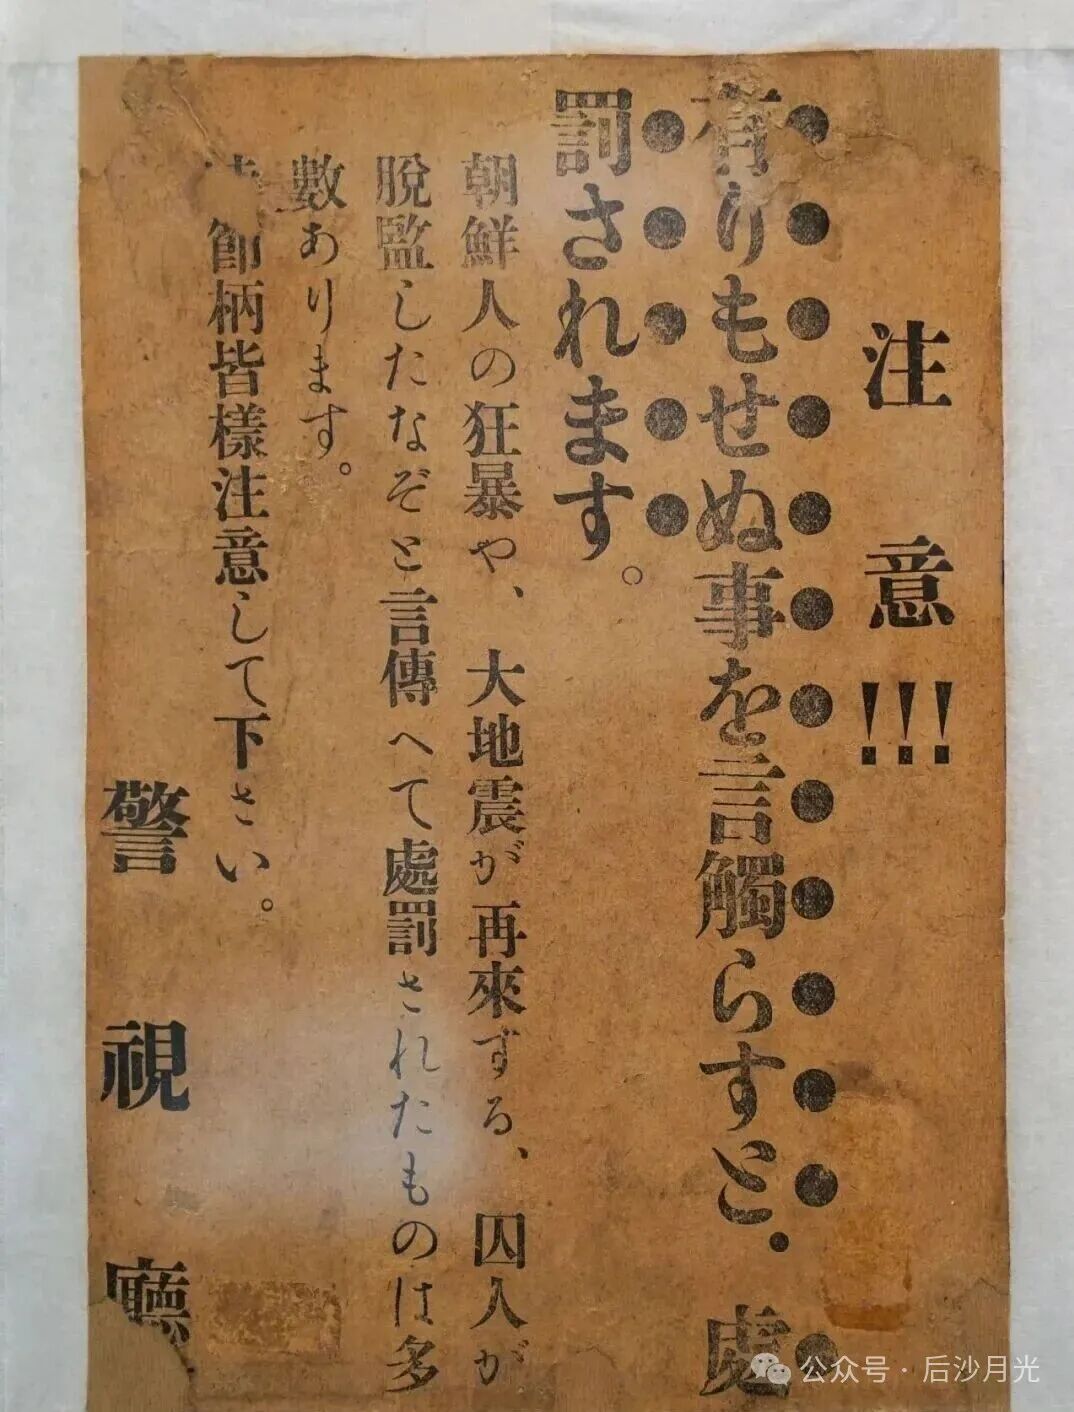 注意!!!
有りもせぬ事を言觸らすと・處
罰されます。
朝鮮人の狂暴や、大地震が再來する、囚人が
脱監したなぞと言傳へて處罰されたものは多
數あります。
節柄皆樣注意して下さい。
警視廳
公众号·后沙月光